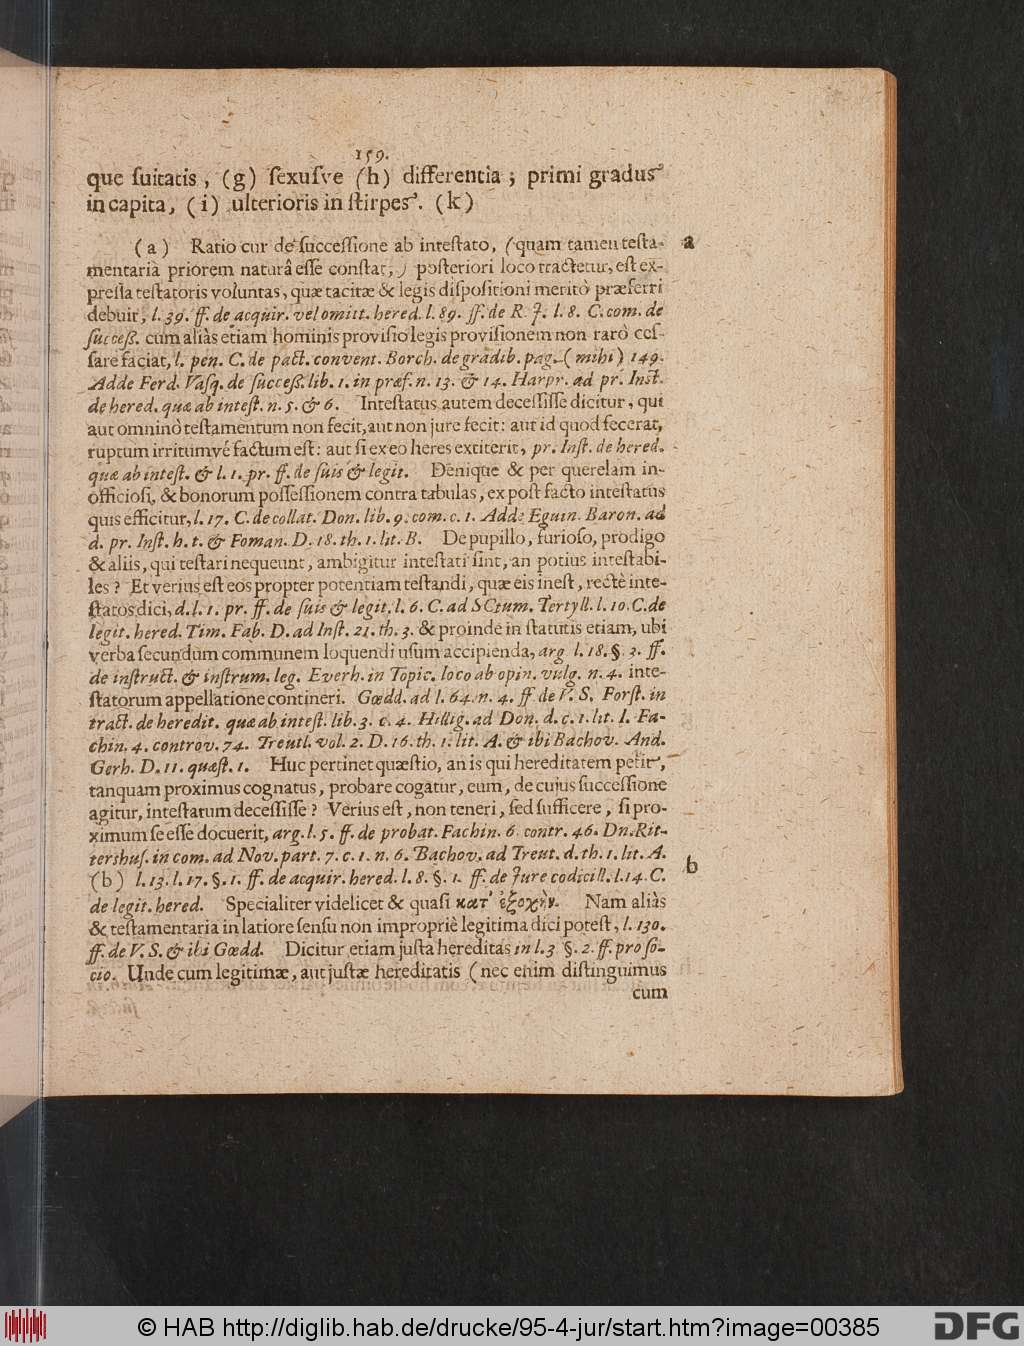 159.
que ſuitatis, (g) ſexuſve (h) differentia; primi gradus
in capita, (i) ulterioris in ſtirpes. (k)
(a) Ratio cur de ſucceſſione ab inteſtato, (quam tamen teſta- a
mentariâ priorem naturâ eſſe conſtat,) poſteriori loco tractetur, eſt ex-
preſſa teſtatoris voluntas, quæ tacitæ & legis diſpoſitioni meritò præferri
debuit, l. 39. ff. de acquir. vel omitt. hered. l. 89. ff. de R. J. l. 8. C. com. de
ſucceß. cum aliàs etiam hominis proviſio legis proviſionem non rarò ceſ-
ſare faciat, l. pen. C. de pact. convent. Borch. de gradib. pag. (mihi) 149.
Adde Ferd. Vaſq. de ſucceß. lib. 1. in præf. n. 13. & 14. Harpr. ad pr. Inſt.
de hered. quæ ab inteſt. n. 5. & 6. Inteſtatus autem deceſſiſſe dicitur, qui
aut omninò teſtamentum non fecit, aut non jure fecit: aut id quod fecerat,
ruptum irritumvé factum eſt: aut ſi ex eo heres extiterit, pr. Inſt. de hered.
quæ ab inteſt. & l. 1. pr. ff. de ſuis & legit. Denique & per querelam in-
officioſi, & bonorum poſſeſſionem contra tabulas, ex poſt facto inteſtatus
quis efficitur, l. 17. C. de collat. Don. lib. 9. com. c. 1. Adde Eguin. Baron. ad
d. pr. Inſt. h. t. & Foman. D. 18. th. 1. lit. B. De pupillo, furioſo, prodigo
& aliis, qui teſtari nequeunt, ambigitur inteſtati ſint, an potius inteſtabi-
les? Et verius eſt eos propter potentiam teſtandi, quæ eis ineſt, rectè inte-
ſtatos dici, d. l. 1. pr. ff. de ſuis & legit. l. 6. C. ad SCtum. Tertyll. l. 10. C. de
legit. hered. Tim. Fab. D. ad Inſt. 21. th. 3. & proinde in ſtatutis etiam, ubi
verba ſecundùm communem loquendi uſum accipienda, arg l. 18. §. 3. ff.
de inſtruct. & inſtrum. leg. Everh. in Topic. loco ab opin. vulg. n. 4. inte-
ſtatorum appellatione contineri. Gœdd. ad l. 64. n. 4. ff. de V. S. Forſt. in
tract. de heredit. quæ ab inteſt. lib. 3. c. 4. Hillig. ad Don. d. c. 1. lit. l. Fa-
chin. 4. controv. 74. Treutl. vol. 2. D. 16. th. 1. lit. A. & ibi Bachov. And.
Gerh. D. 11. quæſt. 1. Huc pertinet quæſtio, an is qui hereditatem petit,
tanquam proximus cognatus, probare cogatur, eum, de cujus ſucceſſione
agitur, inteſtatum deceſſiſſe? Verius eſt, non teneri, ſed ſufficere, ſi pro-
ximum ſe eſſe docuerit, arg. l. 5. ff. de probat. Fachin. 6. contr. 46. Dn. Rit-
tershuſ. in com. ad Nov. part. 7. c. 1. n. 6. Bachov. ad Treut. d. th. 1. lit. A.
(b) l. 13. l. 17. §. 1. ff. de acquir. hered. l. 8. §. 1. ff. de Jure codicill. l. 14. C. b
de legit. hered. Specialiter videlicet & quaſi κατ' ἐξοχὴν. Nam aliàs
& teſtamentaria in latiore ſenſu non impropriè legitima dici poteſt, l. 130.
ff. de V. S. & ibi Gœdd. Dicitur etiam juſta hereditas in l. 3 §. 2. ff. pro ſo-
cio. Unde cum legitimæ, aut juſtæ hereditatis (nec enim diſtinguimus
cum
© HAB http://diglib.hab.de/drucke/95-4-jur/start.htm?image=00385
DFG